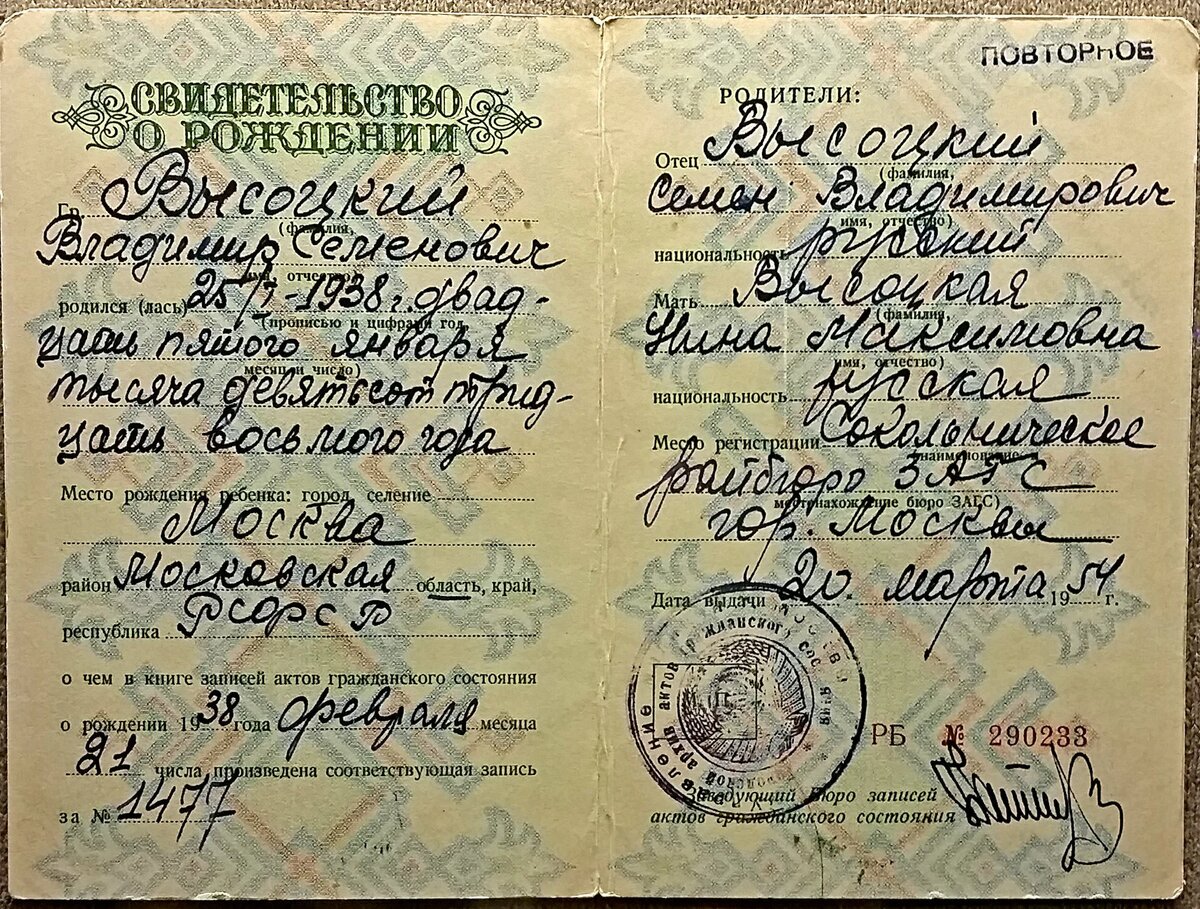 СВИДЕТЕЛЬСТВО
О РОЖДЕНИИ
Гр. Высоцкий
(фамилия,
Владимир Семенович
имя, отчество)
родился (лась) 25/I-1938 г. двад-
(прописью и цифрами год,
цать пятого января
месяц и число)
тысяча девятьсот трид-
цать восьмого года
Место рождения ребенка: город, селение
Москва
район Московская область, край,
республика РСФСР
о чем в книге записей актов гражданского состояния
о рождении 1938 года февраля месяца
21 числа произведена соответствующая запись
за № 1477
ПОВТОРНОЕ
РОДИТЕЛИ:
Отец Высоцкий
(фамилия,
Семен Владимирович
имя, отчество)
национальность русский
Мать Высоцкая
(фамилия,
Нина Максимовна
имя, отчество)
национальность русская
Место регистрации Сокольническое
(наименование и
райбюро ЗАГС
местонахождение бюро ЗАГС)
гор. Москвы
Дата выдачи 20. марта 1954 г.
РБ № 290233
Заведующий Бюро записей
актов гражданского состояния